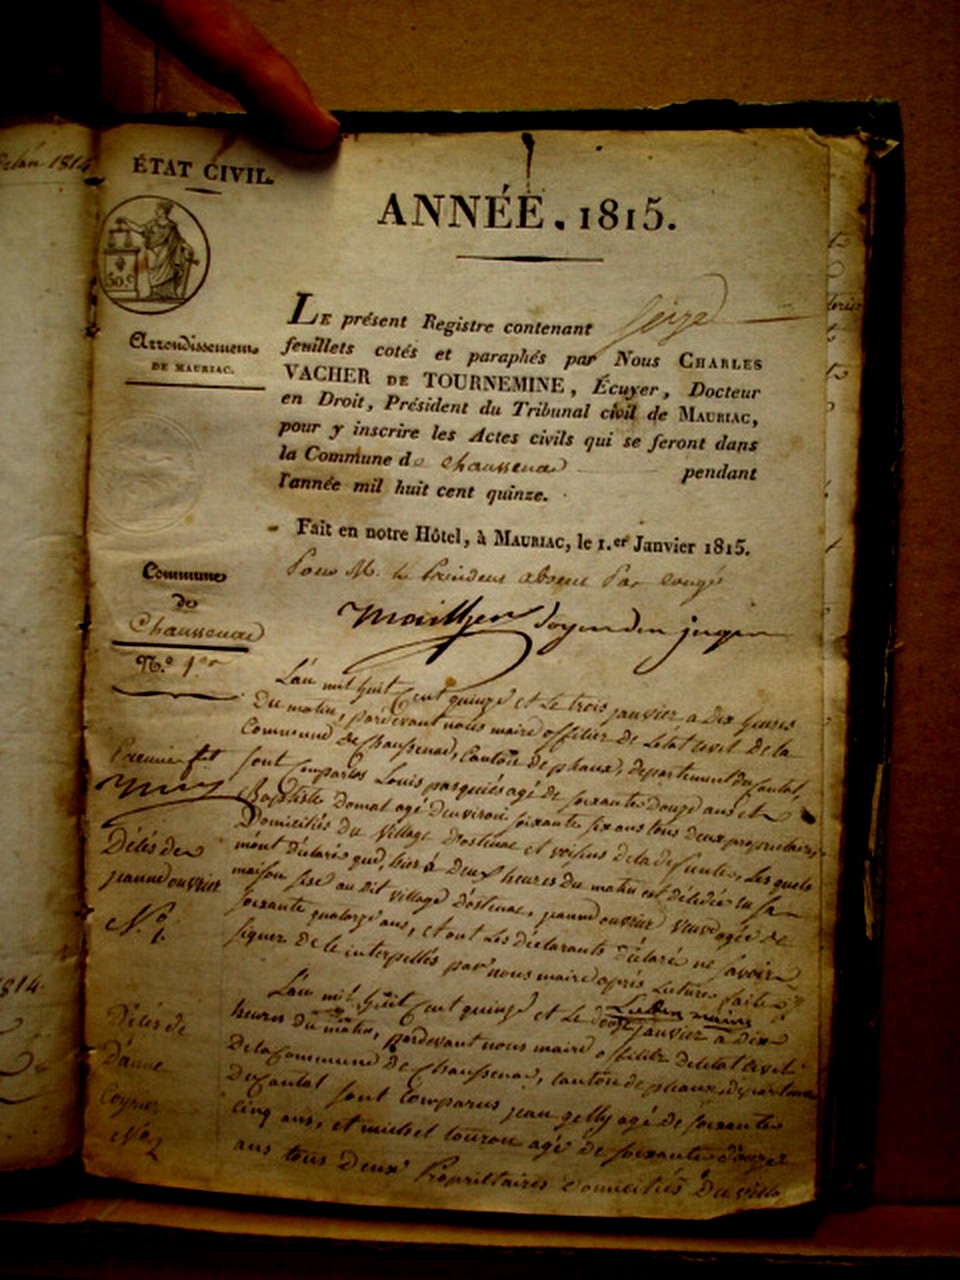 1814
ÉTAT CIVIL.
ANNÉE. 1815.
50.c
LE présent Registre contenant Seize
feuillets cotés et paraphés par Nous CHARLES
VACHER DE TOURNEMINE, Écuyer, Docteur
en Droit, Président du Tribunal civil de MAURIAC,
pour y inscrire les Actes civils qui se feront dans
la Commune de Chaussenac pendant
l'année mil huit cent quinze.
Arrondissement
DE MAURIAC.
Fait en notre Hôtel, à MAURIAC, le 1.er Janvier 1815.
Pour M. le Président absent Par congé
doyen des juges
Commune
de
Chaussenac
N.o 1er
L'an mil huit Cent quinze et Le trois janvier a Dix heures
Du matin, pardevant nous maire offitier De Letat Civil De la
Commune De Chaussenac, Canton De pleaux, departement Du Cantal,
sont Comparus Louis pasquié agé de soixante Douze ans et
Baptiste Domat agé denviron soixante six ans tous deux proprietaires
Domiciliés Du village Dostenac et voisins de la defunte, Les quels
mont Déclaré que, hier à Deux heures Du matin est décédée en sa
maison sise au dit village Dostenac, jeanne ouvrier veuve agée de
soixante quatorze ans, et ont Les déclarants déclaré ne savoir
signer De ce interpellés par nous maire apres Lecture faite
Premier
Délés de
jeanne ouvrier
N.o 1.
L'an mil huit Cent quinze et Le janvier a Dix
heures Du matin, pardevant nous maire offitier De Letat Civil
De la Commune De Chaussenac, Canton de pleaux, departement
Du Cantal sont Comparus jean gelly agé de soixante
cinq ans, et michel touron agé de soixante Douze
ans tous Deux Proprietaires Domiciliés Du
Délés de
D'anne
N.o 2
1814.